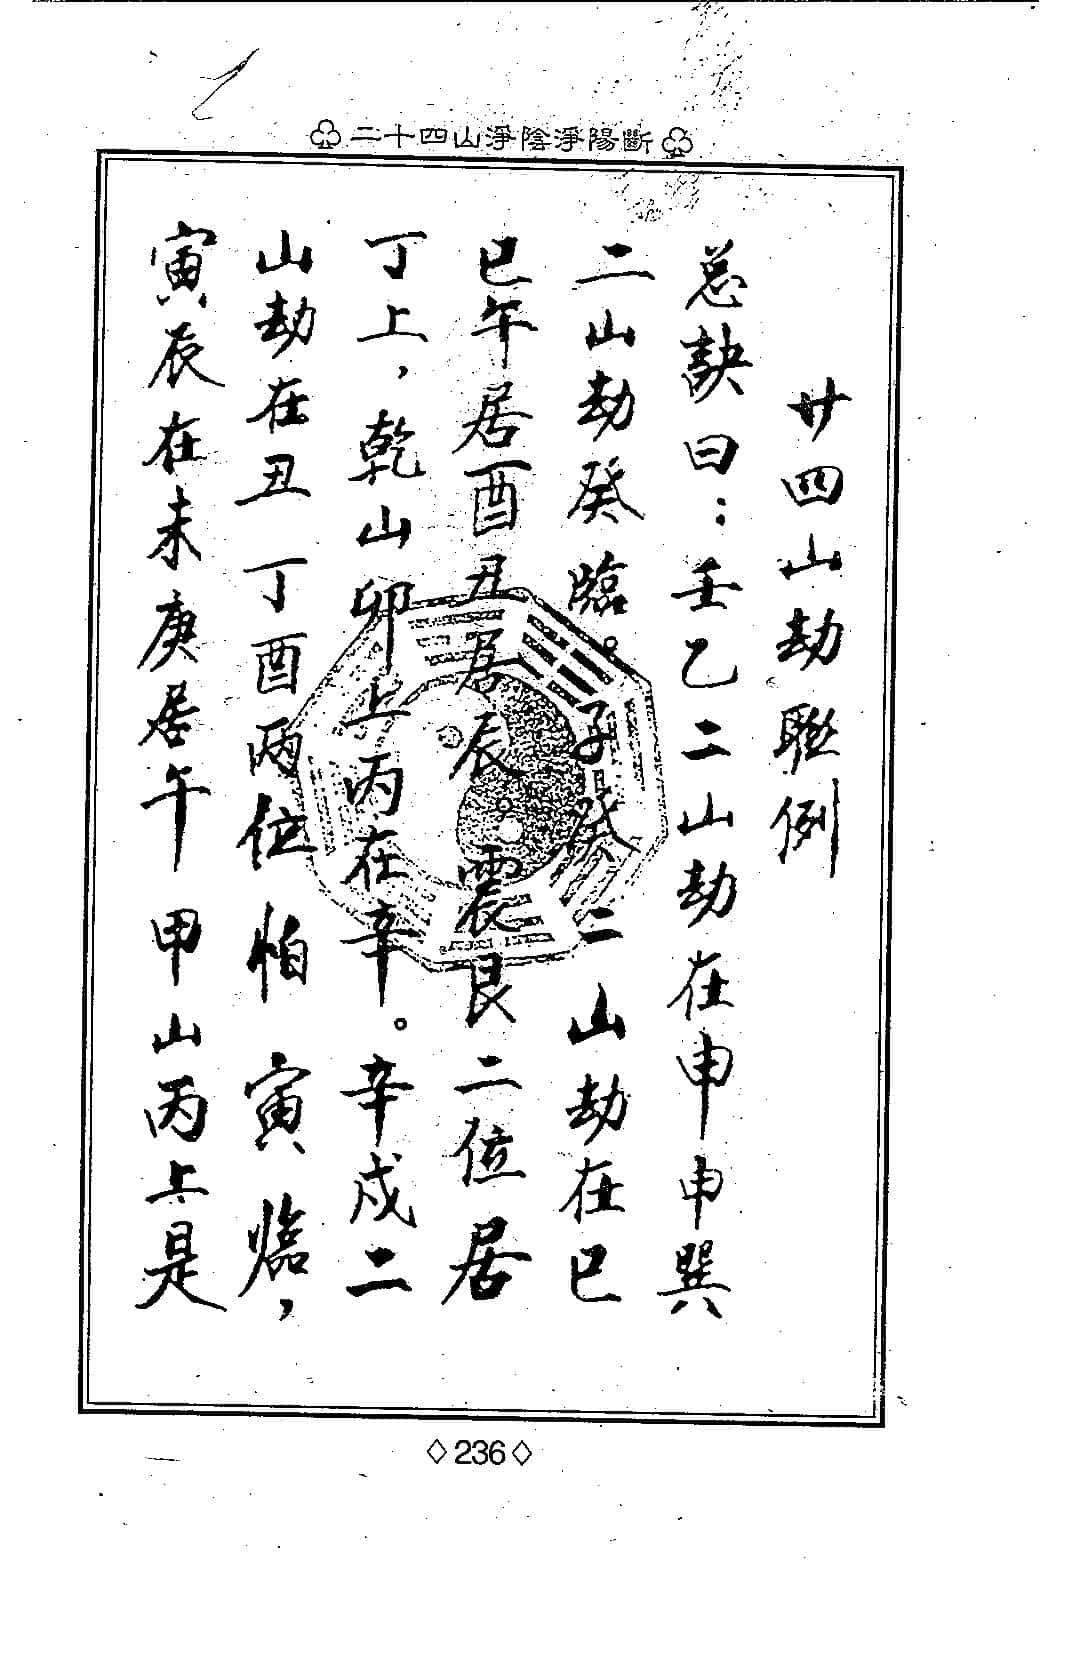 二十四山淨陰淨陽斷
廿四山劫聅例
总訣曰：壬乙二山劫在申申巽
二山劫癸臨。子癸二山劫在巳
巳午居酉丑居辰震艮二位居
丁上，乾山卯上丙在辛。辛戍二
山劫在丑丁酉两位怕寅臨，
寅辰在未庚居午甲山丙上是
236